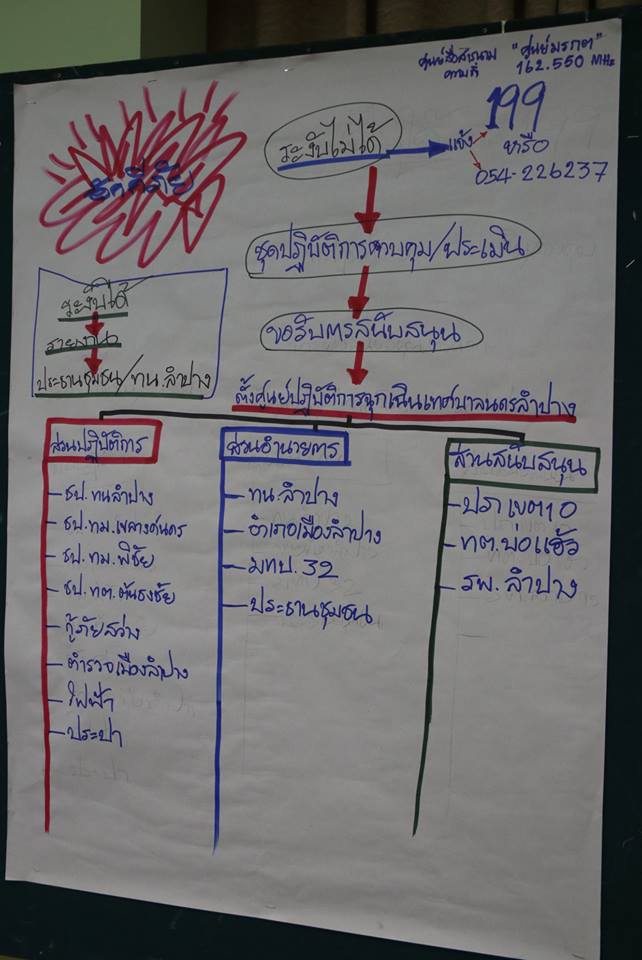 ศูนย์สื่อสารนาม "ศูนย์มรกต"
ความถี่ 162.550 MHz
อัคคีภัย
ระงับไม่ได้
แจ้ง
199
หรือ
054-226237
ชุดปฏิบัติการควบคุม/ประเมิน
ขอรับการสนับสนุน
ตั้งศูนย์ปฏิบัติการฉุกเฉินเทศบาลนครลำปาง
ระงับได้
รายงาน
ประธานชุมชน/ทน.ลำปาง
ส่วนปฏิบัติการ
- ธป.ทน.ลำปาง
- ธป.ทม.เขลางค์นคร
- ธป.ทม.พิชัย
- ธป.ทต.ต้นธงชัย
- กู้ภัยสว่าง
- ตำรวจเมืองลำปาง
- ไฟฟ้า
- ประปา
ส่วนอำนวยการ
- ทน.ลำปาง
- อำเภอเมืองลำปาง
- มทบ.32
- ประธานชุมชน
ส่วนสนับสนุน
- ปภ เขต 10
- ทต.บ่อแฮ้ว
- รพ.ลำปาง